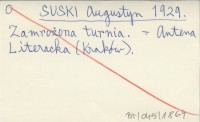 O SUSKI Augustyn 1929.
Zamrożona turnia. - Antena
Literacka (Kraków).